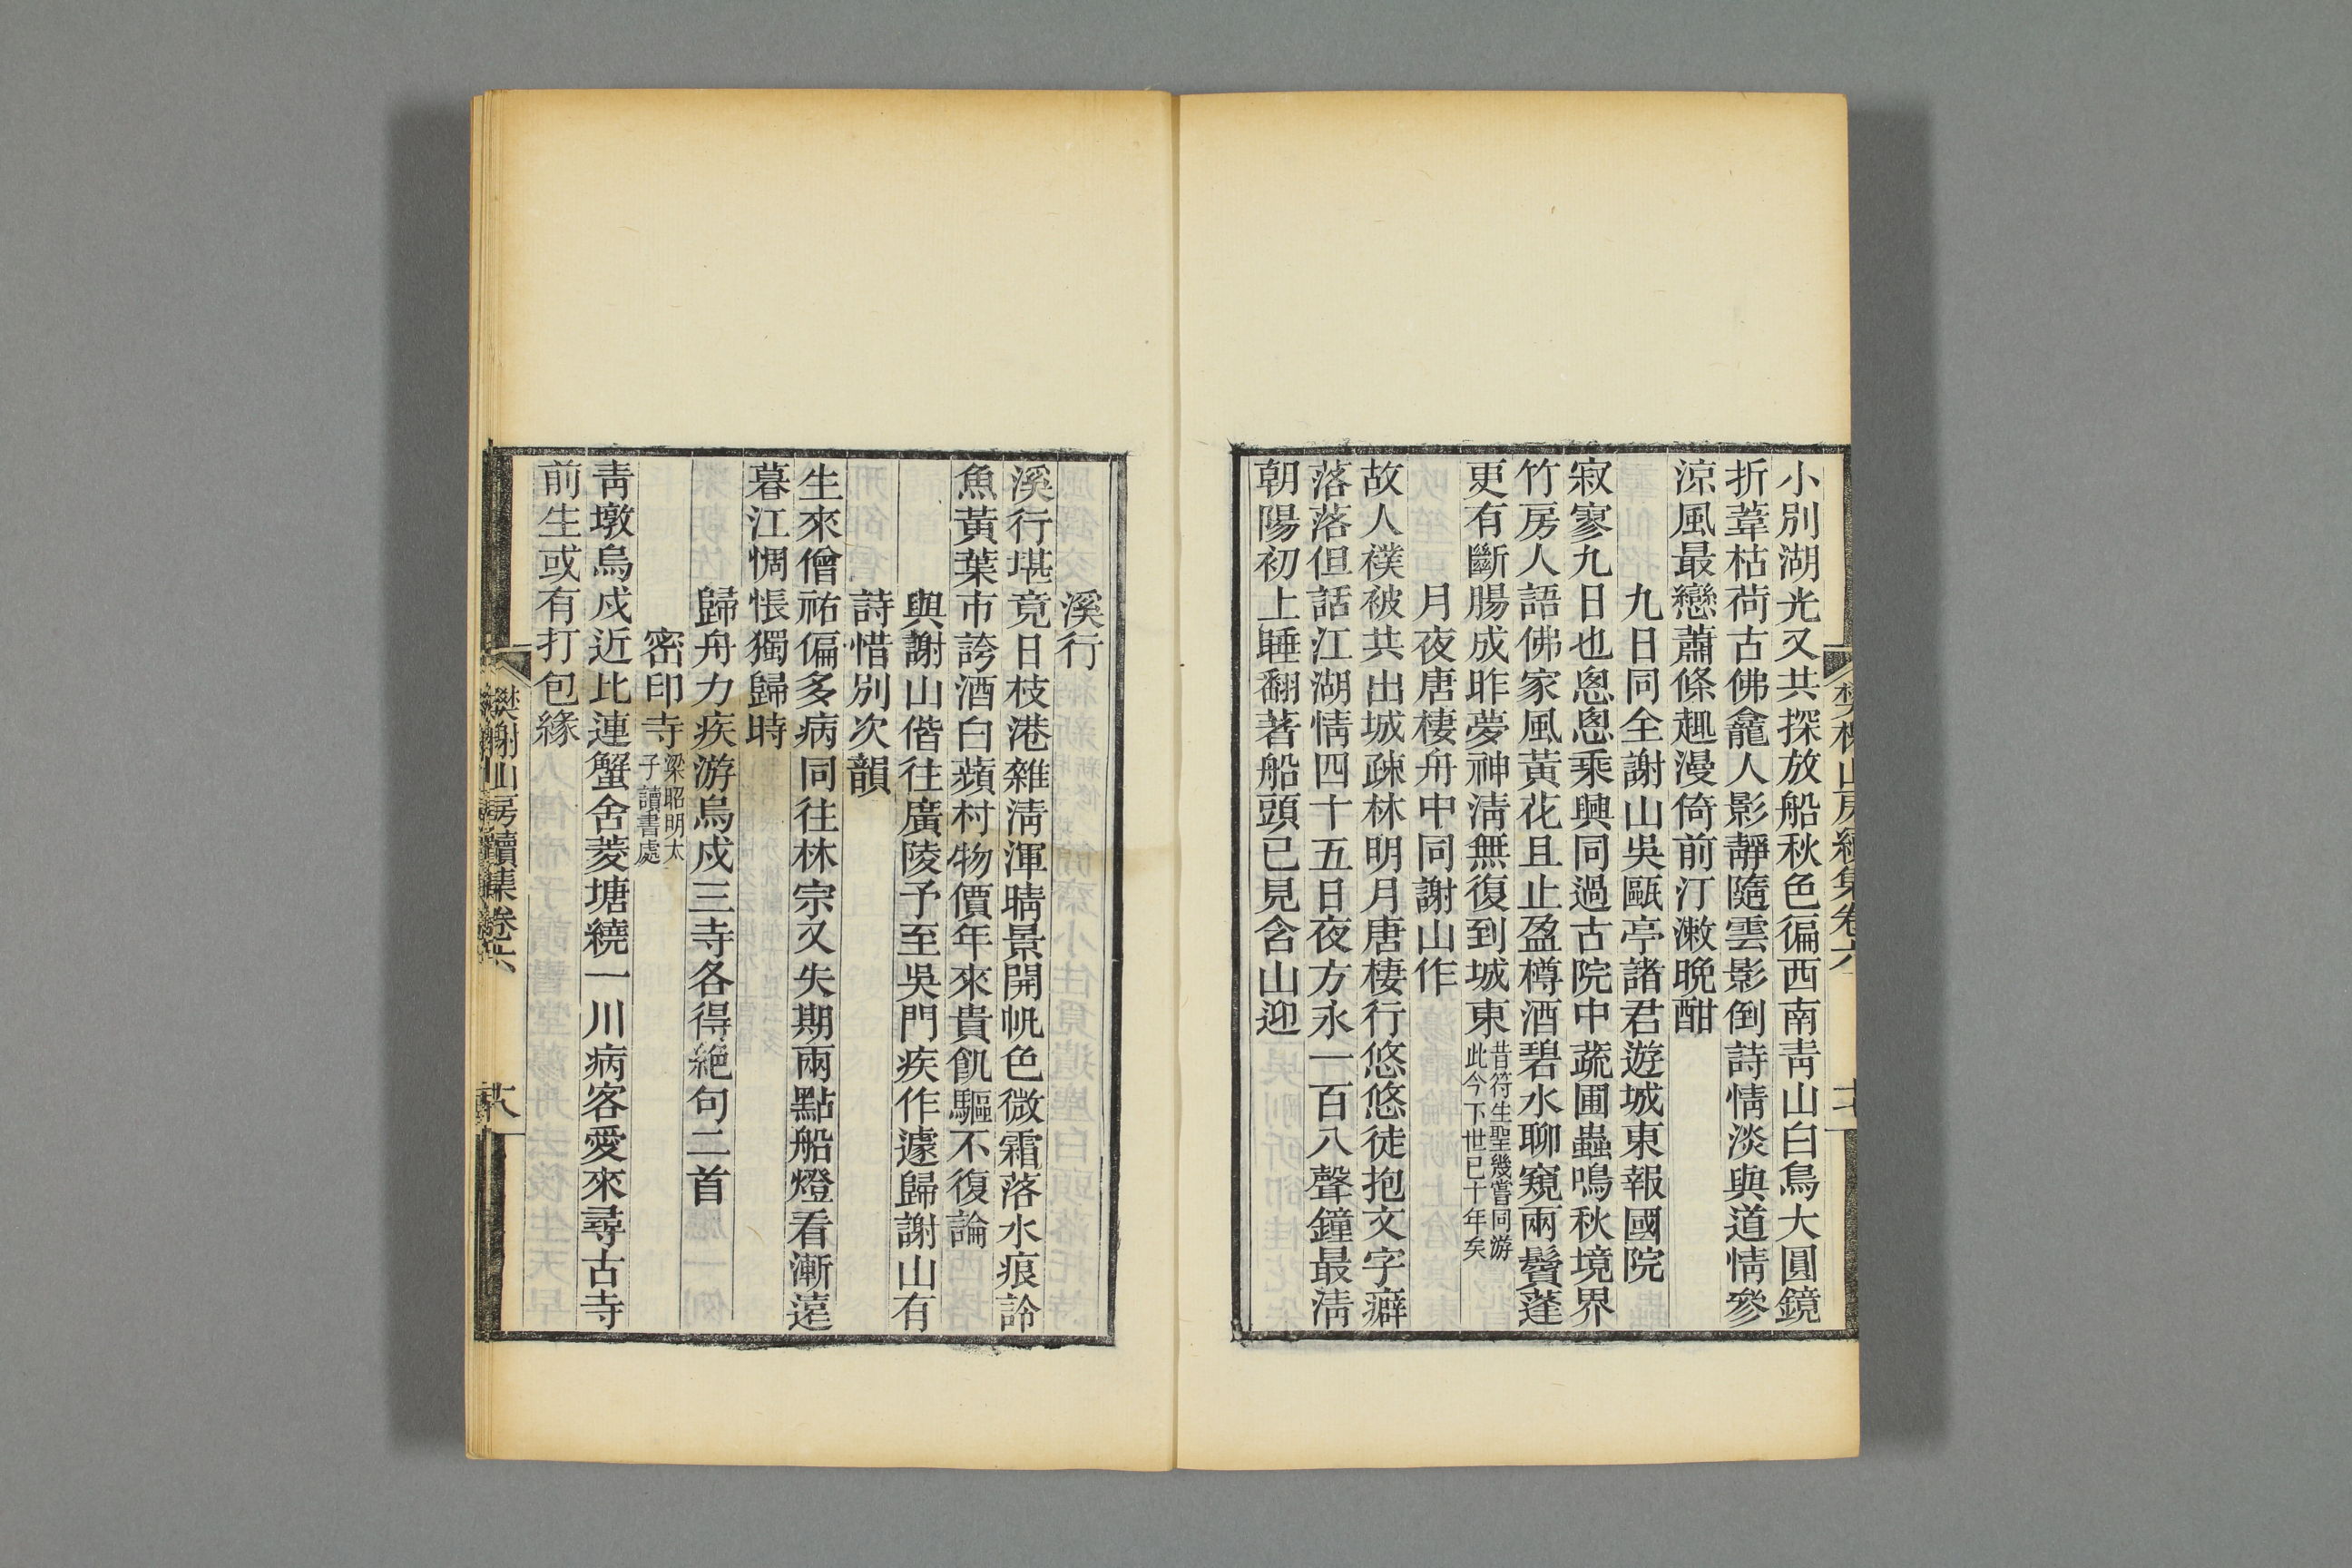 樊榭山房續集卷六
十七
小別湖光又共探放船秋色徧西南靑山白鳥大圓鏡
折葦枯荷古佛龕人影靜隨雲影倒詩情淡與道情參
涼風最戀蕭條趣漫倚前汀漱晚酣
九日同全謝山吳甌亭諸君遊城東報國院
寂寥九日也悤悤乘興同過古院中蔬圃蟲鳴秋境界
竹房人語佛家風黃花且止盈樽酒碧水聊窺兩鬢蓬
更有斷腸成昨夢神淸無復到城東昔符生聖幾嘗同游此今下世已十年矣
月夜唐棲舟中同謝山作
故人襆被共出城疎林明月唐棲行悠悠徒抱文字癖
落落但話江湖情四十五日夜方永一百八聲鐘最淸
朝陽初上睡翻著船頭已見含山迎
溪行
溪行堪竟日枝港雜淸渾晴景開帆色微霜落水痕詅
魚黃葉市誇酒白蘋村物價年來貴飢驅不復論
與謝山偕往廣陵予至吳門疾作遽歸謝山有
詩惜別次韻
生來僧祐偏多病同往林宗又失期兩點船燈看漸遠
暮江惆悵獨歸時
歸舟力疾游烏戍三寺各得絕句二首
密印寺梁昭明太子讀書處
靑墩烏戍近比連蟹舍菱塘繞一川病客愛來尋古寺
前生或有打包緣
樊榭山房續集卷六
十八